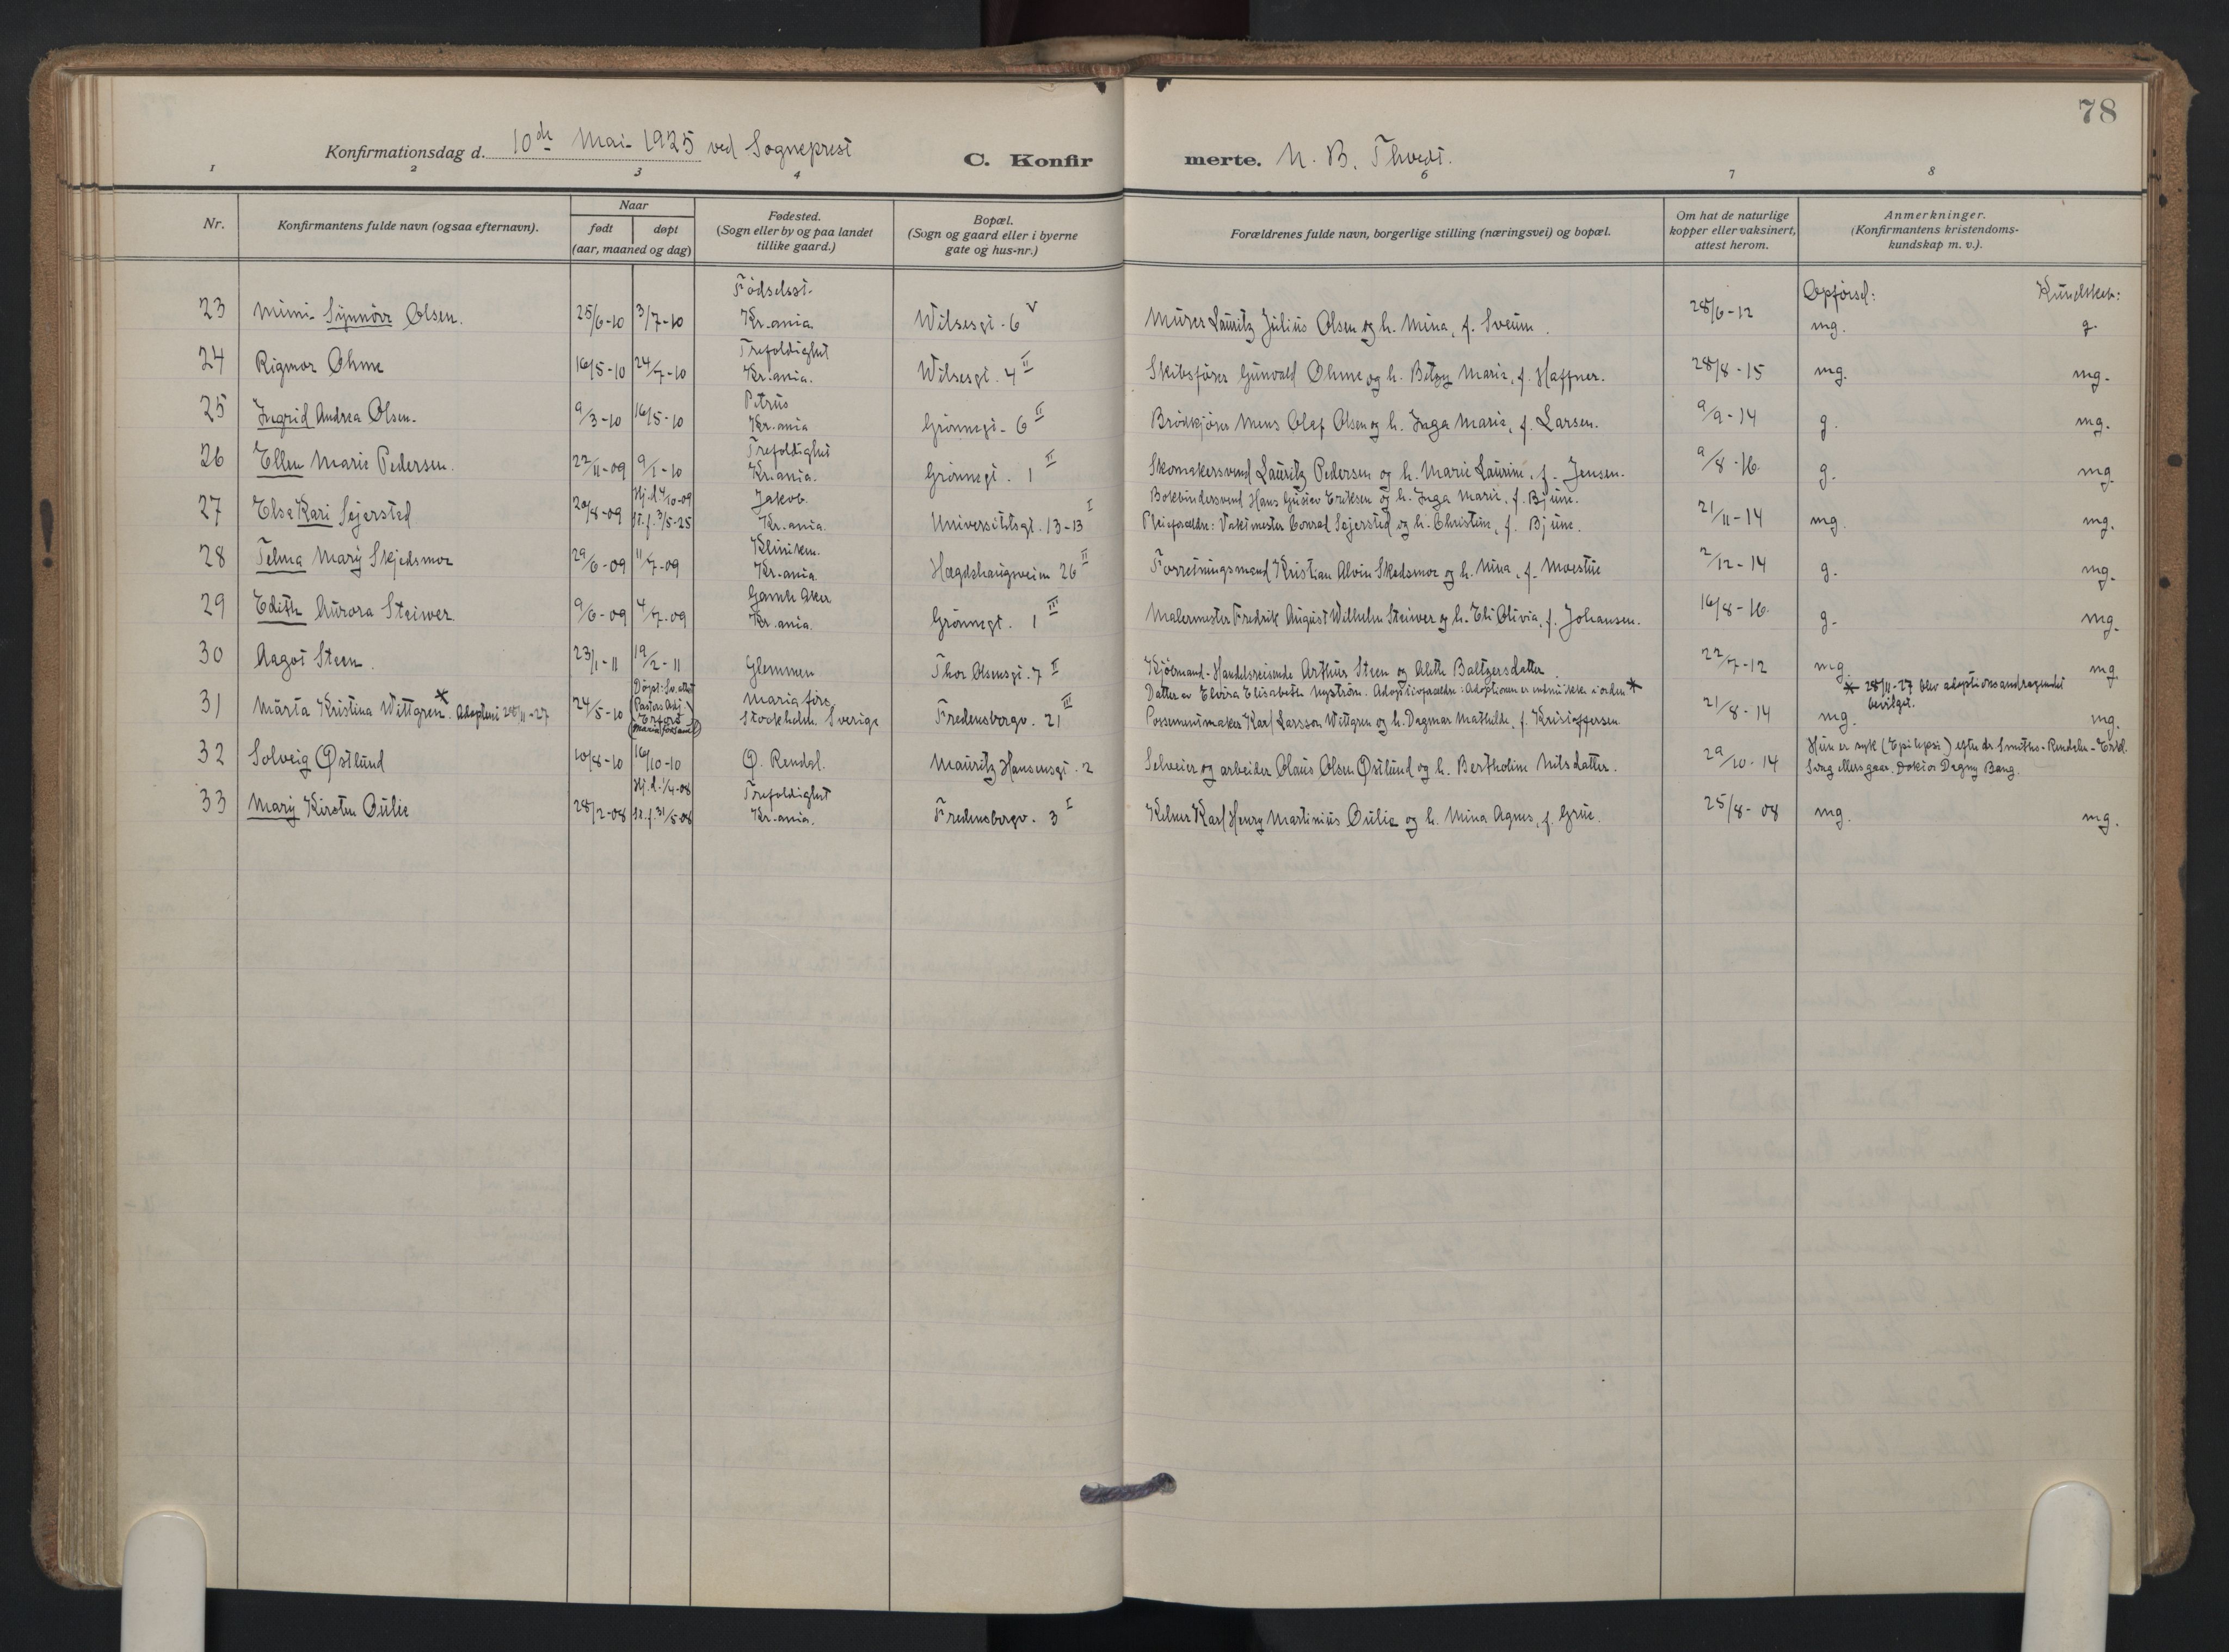 78
Konfirmationsdag d. 10de Mai 1925 ved Sogneprest C. Konfirmerte. N. B. Thvedt.
1 2 3 4 6 7 8
Nr. Konfirmantens fulde navn (ogsaa efternavn). Naar født døpt (aar, maaned og dag) Fødested. (Sogn eller by og paa landet tillike gaard.) Bopæl. (Sogn og gaard eller i byerne gate og hus-nr.) Forældrenes fulde navn, borgerlige stilling (næringsvei) og bopæl. Om hat de naturlige kopper eller vaksinert, attest herom. Anmerkninger. (Konfirmantens kristendoms-kundskap m. v.).
Opførsel: Kundskab:
23 Mimi Synnøve Olsen. 25/6-10 3/7-10 Fødselsst. Kr.ania. Wilsesgt. 6 V Murer Lauritz Julius Olsen og h. Mina, f. Sveum. 28/6-12 mg. g.
24 Rigmor Ohme 16/5-10 24/7-10 Trefoldighet Kr.ania. Wilsesgt. 4 II Skibsfører Gunvald Ohme og h. Betzy Marie, f. Haffner. 28/8-15 mg. mg.
25 Ingrid Andrea Olsen. 9/3-10 16/5-10 Petrus Kr.ania Grønnegt. 6 II Brødkjører Mens Olaf Olsen og h. Inga Marie, f. Larsen. 9/9-14 g. mg.
26 Ellen Marie Pedersen. 22/11-09 9/1-10 Trefoldighet Kr.ania. Grønnegt. 1 II Skomakersvend Lauritz Pedersen og h. Marie Laurine, f. Jensen. 9/8-16 g. mg.
27 Else Kari Sejersted 20/8-09 Hj.d. 4/10-09 st.f. 3/5-25 Jakob. Kr.ania. Universitetsgt. 13-13 I Bokbindersvend Hans Gustav Eriksen og h. Inga Marie, f. Bjune.
Pleieforældre: Vaktmester Conrad Sejersted og h. Christine, f. Bjune. 21/11-14 mg. mg.
28 Telma Mary Skjedsmor 29/6-09 11/7-09 Kliniken. Kr.ania. Hægdehaugsveien 26 II Forretningsmand Kristian Alvin Skedsmor og h. Nina, f. Moestue 2/12-14 g. mg.
29 Edith Aurora Steiwer. 9/6-09 4/7-09 Gamle Aker Kr.ania. Grønnegt. 1 III Malermester Fredrik August Wilhelm Steiwer og h. Eli Olivia, f. Johansen. 16/8-16 g. mg.
30 Aagot Steen. 23/1-11 19/2-11 Glemmen Thor Olsensgt. 7 II Kjøbmand-Handelsreisende Arthur Steen og Aleth Baltzersdatter. 22/7-12 mg. mg.
31 Märta Kristina Wittgren * Adoptert 28/11-27 24/5-10 Døpt: Sv. attest (Pastors Adj. Maria forsaml.) Maria förs. Stockholm Sverige Fredensborgv. 21 III Datter av Elvira Elisabeth Nyström. Adoptivforældre: Adoptionen er endnu ikke i orden *
Possementmaker Karl Larsson Wittgren og h. Dagmar Mathilde, f. Kristoffersen. 21/8-14 * 28/11-27 blev adoptionsandragendet bevilget. mg. mg.
32 Solveig Østlund 10/8-10 16/10-10 Ø. Rendal. Mauritz Hansensgt. 2 Selveier og arbeider Olaus Olsen Østlund og h. Bertholine Nilsdatter. 29/10-14 Hun er syk (Epilepsi) efter dr Smiths-Rendalen-Erkl.
Svag ellers gaar. Doktor Dagny Bang.
33 Mary Kirsten Bulie 28/2-08 Hj.d. 1/4-08 st.f. 31/5-08 Trefoldighet Kr.ania. Fredensborgv. 3 I Kelner Karl Henry Martinius Bulie og h. Mina Agnes, f. Grue. 25/8-08 mg. mg.